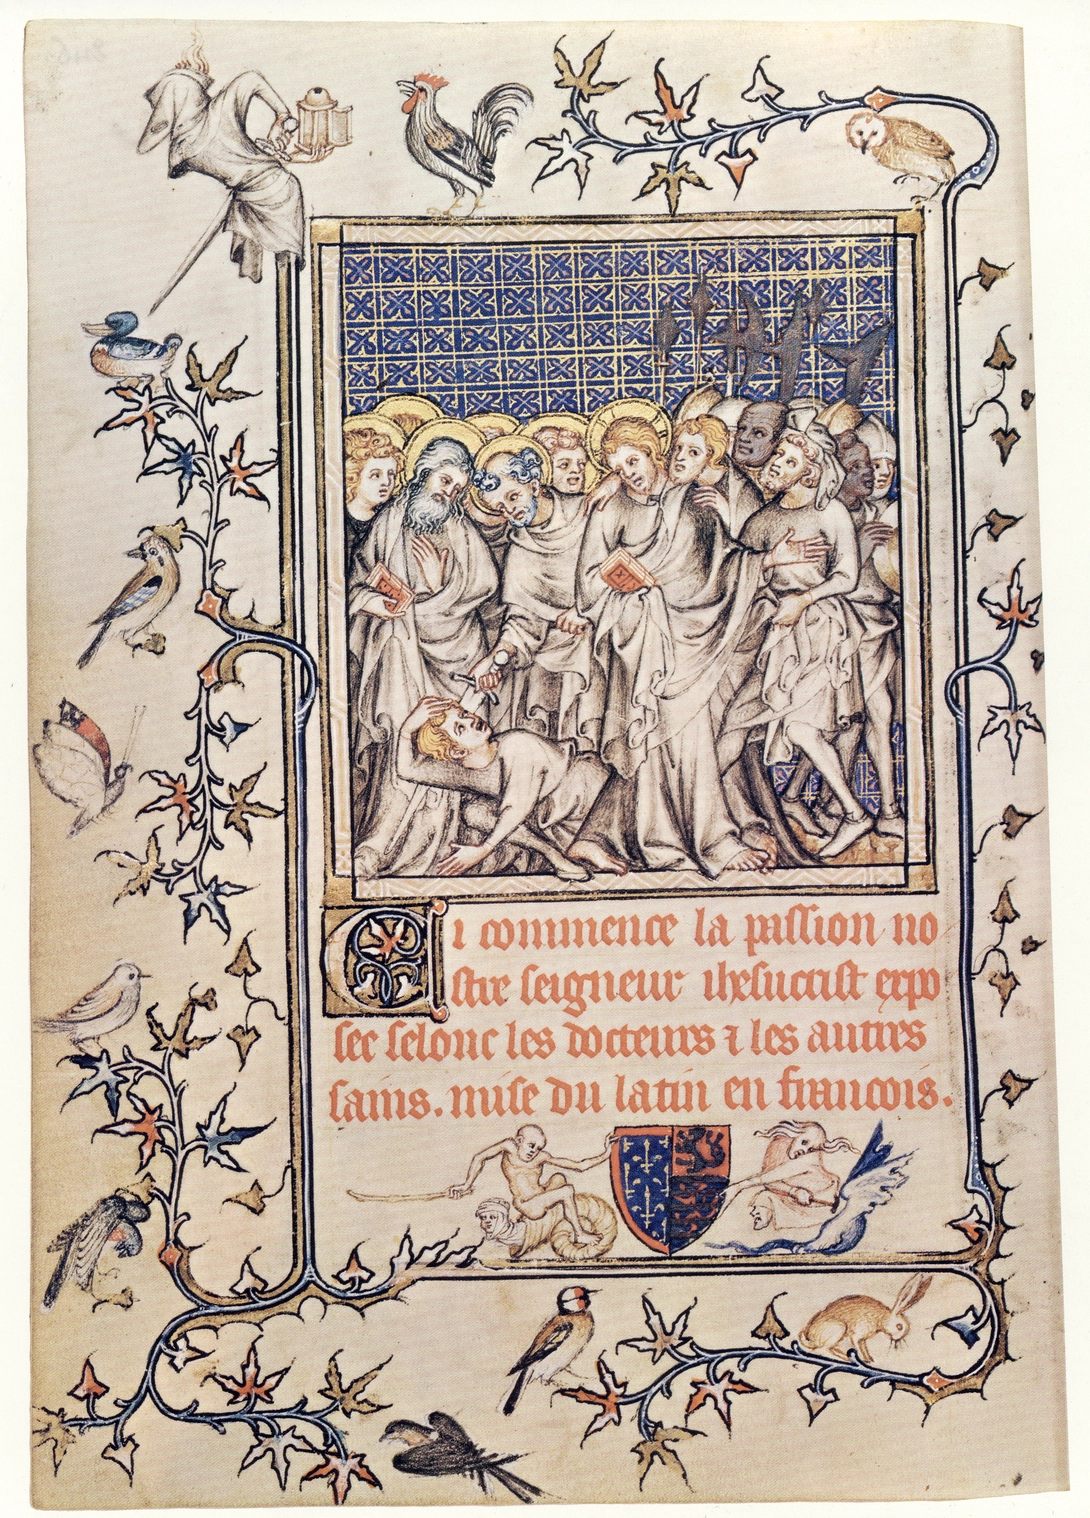 Ci commence la passion no
stre seigneur ihesucrist expo
see selonc les docteurs ⁊ les autres
sains. mise du latin en francois.